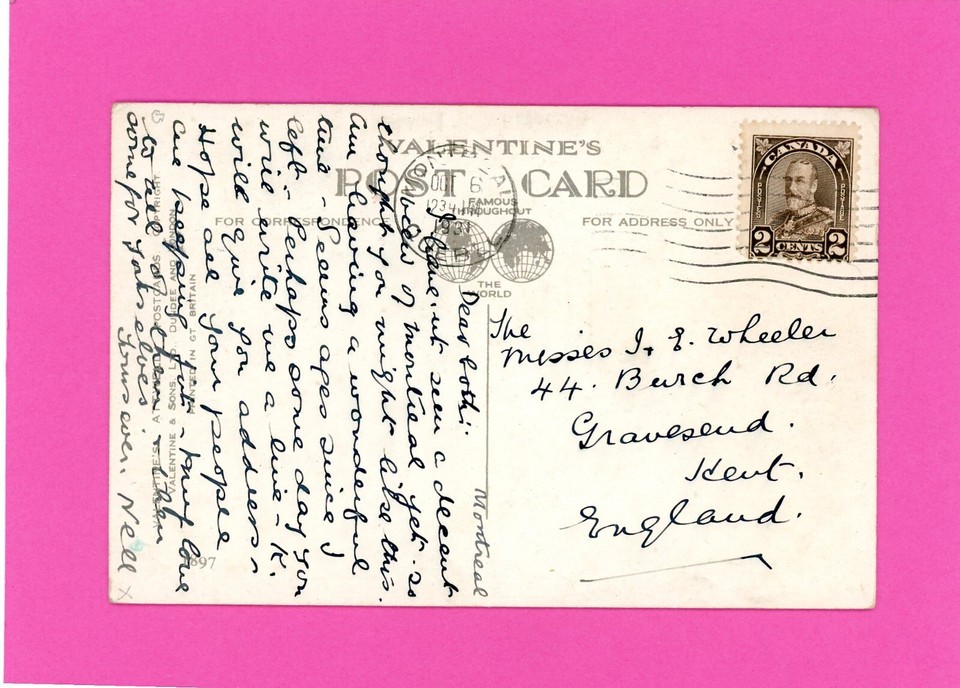 VALENTINE'S
POST CARD
FAMOUS
THROUGHOUT
THE
WORLD
FOR CORRESPONDENCE
FOR ADDRESS ONLY
MONTREAL
OCT 6
1234 PM
1931
CANADA
POSTES
POSTAGE
2 CENTS 2
The
Misses I. & E. Wheeler
44. Burch Rd.
Gravesend.
Kent.
England.
Montreal
Dear both:-
I have'nt seen a decent
view of Montreal yet - so
thought you might like this.
Am having a wonderful
time - Seems ages since I
left - Perhaps some day you
will write me a line - K.
will give you address.
Hope all your people
are keeping fit - My love
to all of them - then
some for yourselves
Yours ever. Nell x
VALENTINE & SONS, LTD. DUNDEE AND LONDON
PRINTED IN GT BRITAIN